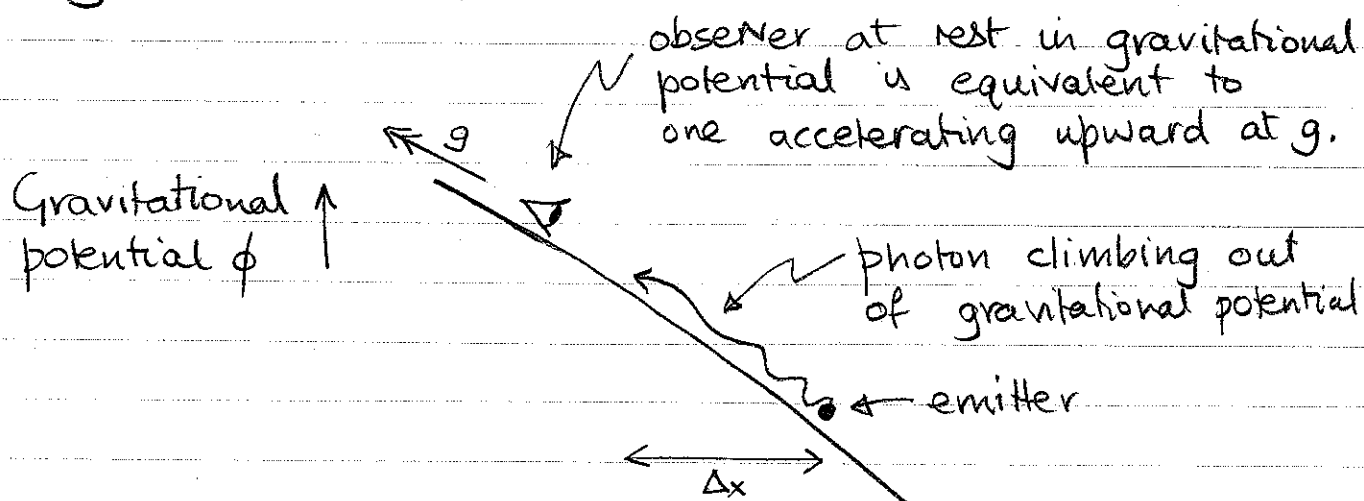 observer at rest in gravitational
potential is equivalent to
one accelerating upward at g.
g
Gravitational
potential ϕ
photon climbing out
of gravitational potential
emitter
Δx